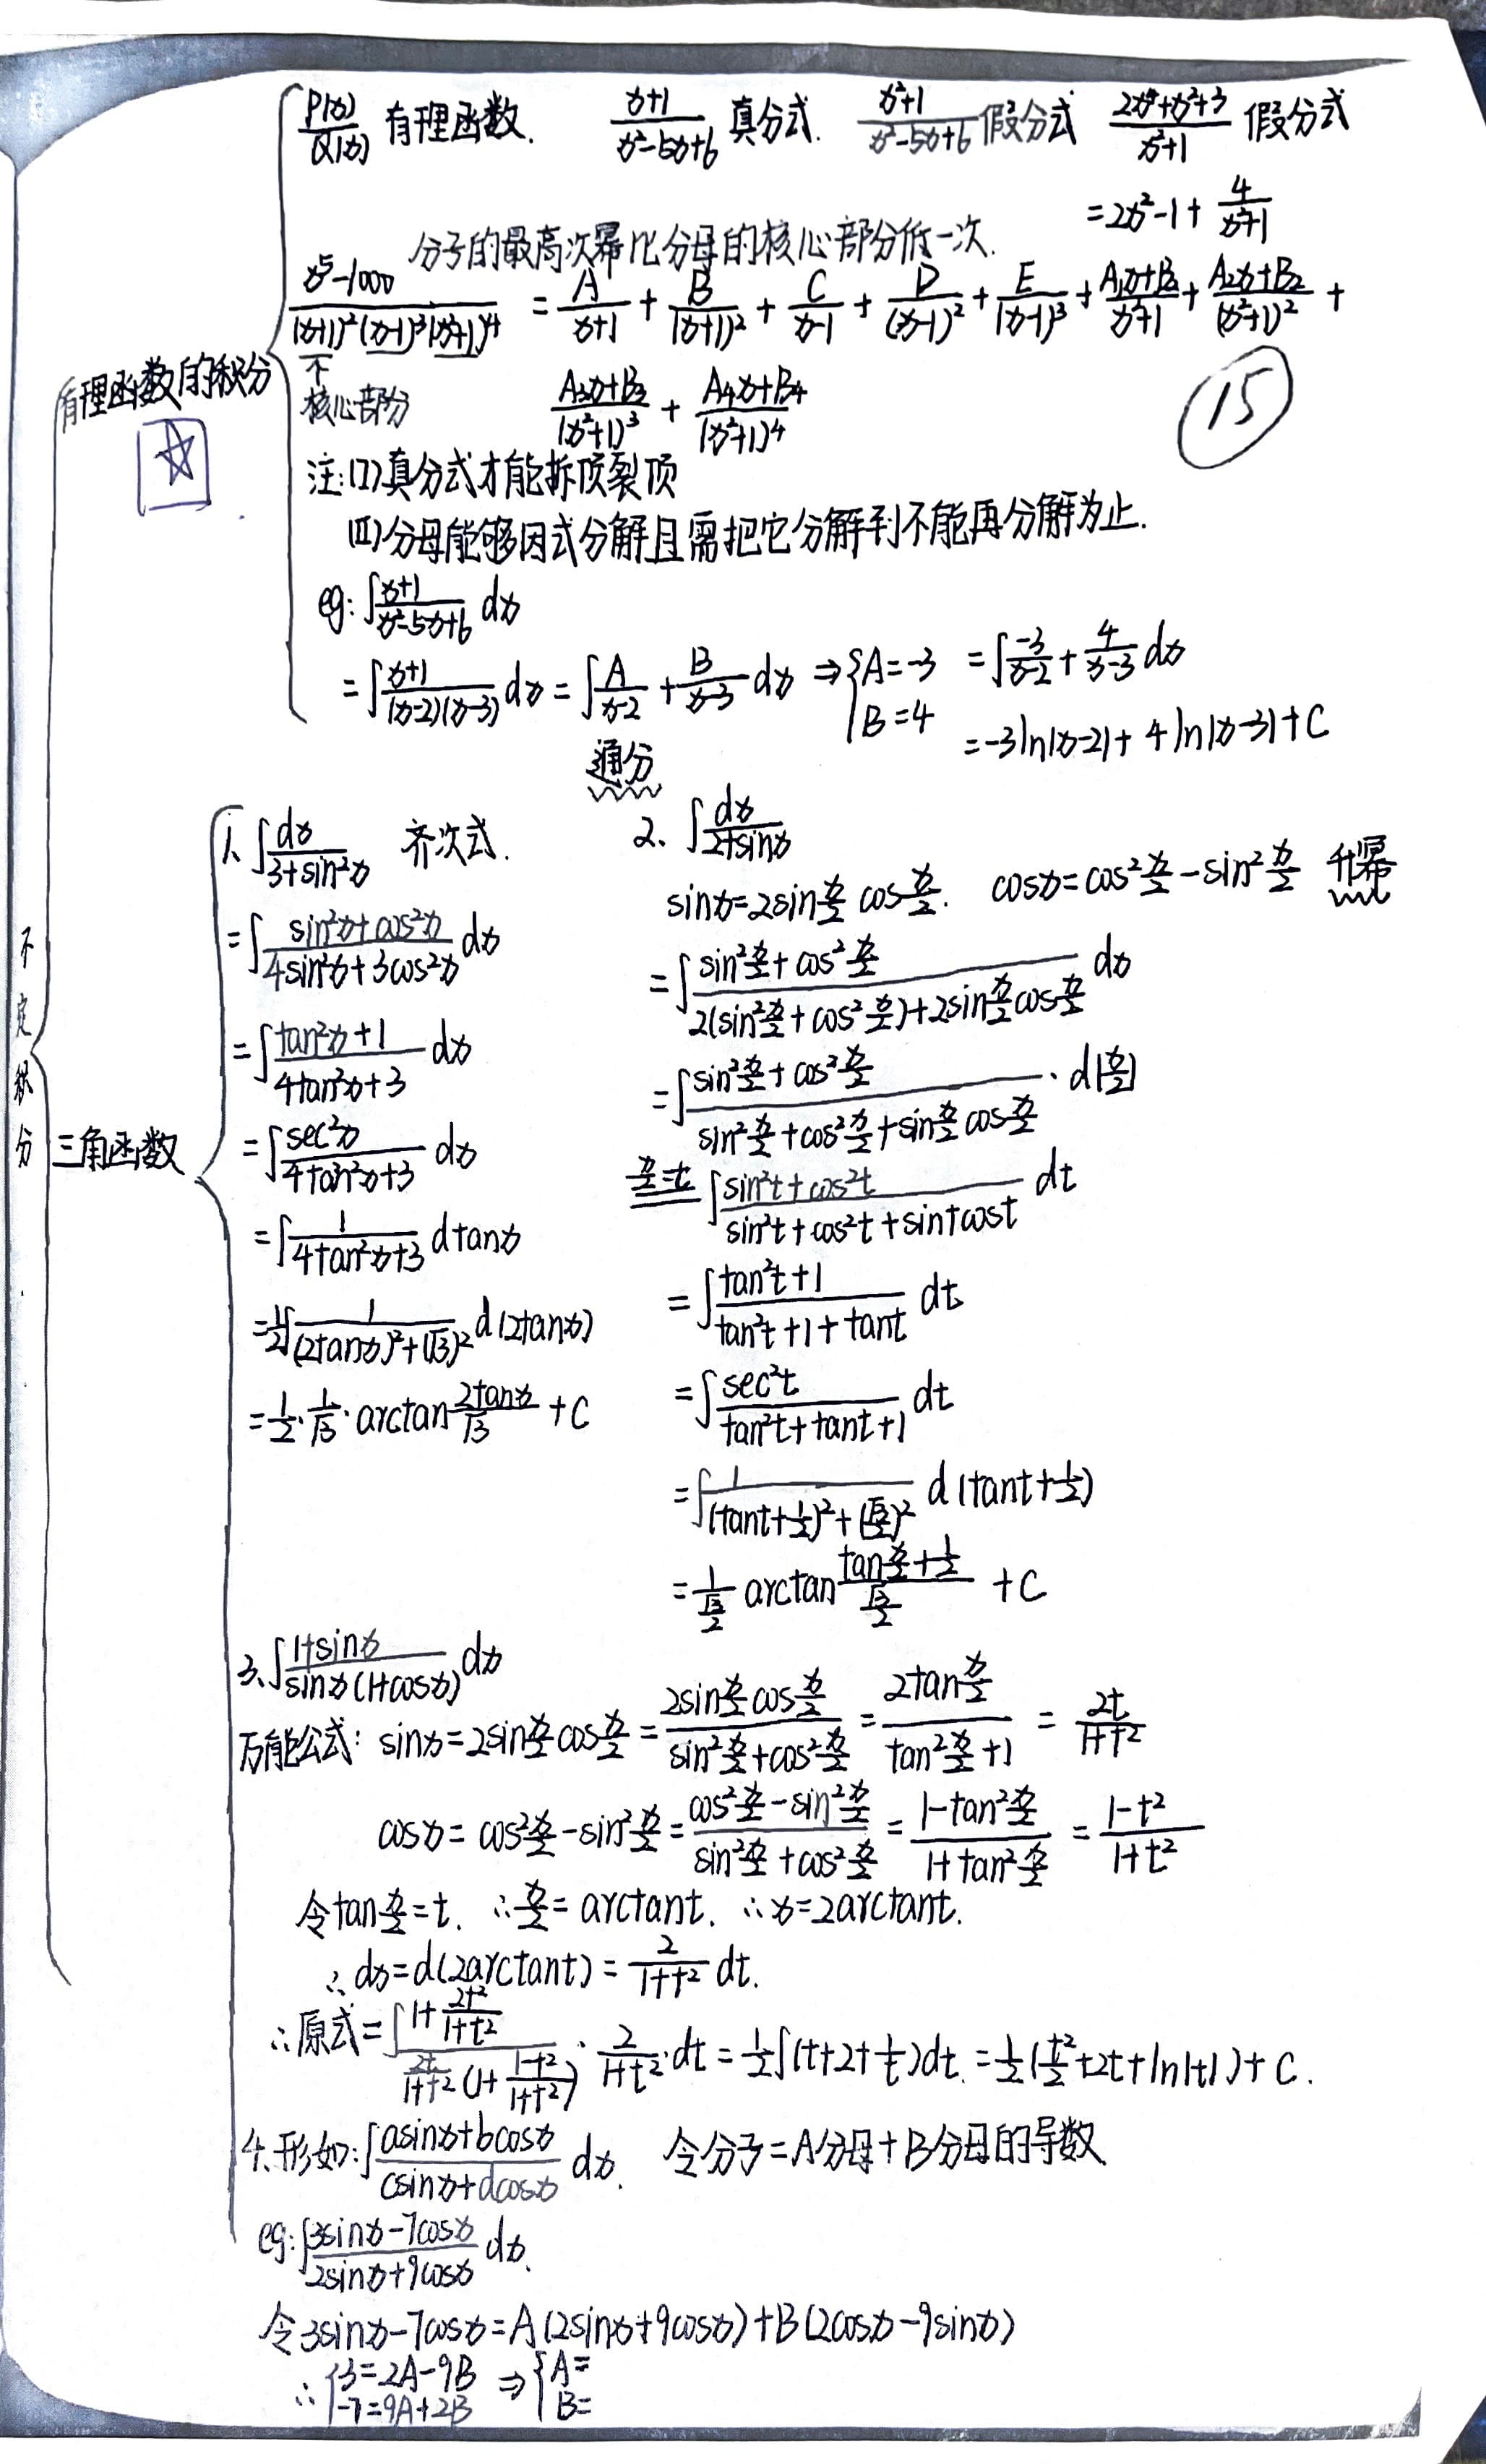 P(x)/Q(x) 有理函数. (x+1)/(x²-5x+6) 真分式. (x²+1)/(x²-5x+6) 假分式 (2x⁴+x²+3)/(x²+1) 假分式
=2x²-1+4/(x²+1)
分子的最高次幂比分母的核心部分低一次.
(x⁵-1000)/((x+1)²(x-1)³(x²+1)⁴) = A/(x+1) + B/(x+1)² + C/(x-1) + D/(x-1)² + E/(x-1)³ + (A₁x+B₁)/(x²+1) + (A₂x+B₂)/(x²+1)² +
(A₃x+B₃)/(x²+1)³ + (A₄x+B₄)/(x²+1)⁴
↑
核心部分
有理函数的积分
☆
15
注:(I)真分式才能拆项裂项
(II)分母能够因式分解且需把它分解到不能再分解为止.
eg: ∫(x+1)/(x²-5x+6) dx
=∫(x+1)/((x-2)(x-3)) dx = ∫A/(x-2) + B/(x-3) dx ⇒ {A=-3 B=4 =∫-3/(x-2) + 4/(x-3) dx
=-3ln|x-2|+4ln|x-3|+C
通分
不定积分
三角函数
1、∫dx/(3+sin²x) 齐次式.
=∫(sin²x+cos²x)/(4sin²x+3cos²x) dx
=∫(tan²x+1)/(4tan²x+3) dx
=∫sec²x/(4tan²x+3) dx
=∫1/(4tan²x+3) dtanx
=1/2∫1/((2tanx)²+(√3)²) d(2tanx)
=1/2·1/√3·arctan 2tanx/√3 +C
2、∫dx/(2+sinx)
sinx=2sin x/2 cos x/2. cosx=cos² x/2-sin² x/2 升幂
=∫(sin² x/2+cos² x/2)/(2(sin² x/2+cos² x/2)+2sin x/2 cos x/2) dx
=∫(sin² x/2+cos² x/2)/(sin² x/2+cos² x/2+sin x/2 cos x/2)·d(x/2)
x/2=t ∫(sin²t+cos²t)/(sin²t+cos²t+sintcost) dt
=∫(tan²t+1)/(tan²t+1+tant) dt
=∫sec²t/(tan²t+tant+1) dt
=∫1/((tant+1/2)²+(√3/2)²) d(tant+1/2)
=1/(√3/2) arctan (tan x/2+1/2)/(√3/2) +C
3、∫(1+sinx)/(sinx(1+cosx)) dx
万能公式: sinx=2sin x/2 cos x/2=(2sin x/2 cos x/2)/(sin² x/2+cos² x/2)=(2tan x/2)/(tan² x/2+1)=2t/(1+t²)
cosx=cos² x/2-sin² x/2=(cos² x/2-sin² x/2)/(sin² x/2+cos² x/2)=(1-tan² x/2)/(1+tan² x/2)=(1-t²)/(1+t²)
令tan x/2=t. ∴x/2=arctant. ∴x=2arctant.
∴dx=d(2arctant)=2/(1+t²) dt.
∴原式=∫(1+2t²/(1+t²))/(2t/(1+t²)(1+(1-t²)/(1+t²)))·2/(1+t²)·dt=1/2∫(t+2+1/t)dt.=1/2(t²/2+2t+ln|t|)+C.
4、形如:∫(asinx+bcosx)/(csinx+dcosx) dx. 令分子=A分母+B分母的导数
eg:∫(3sinx-7cosx)/(2sinx+9cosx) dx.
令3sinx-7cosx=A(2sinx+9cosx)+B(2cosx-9sinx)
∴{3=2A-9B -7=9A+2B ⇒{A= B=